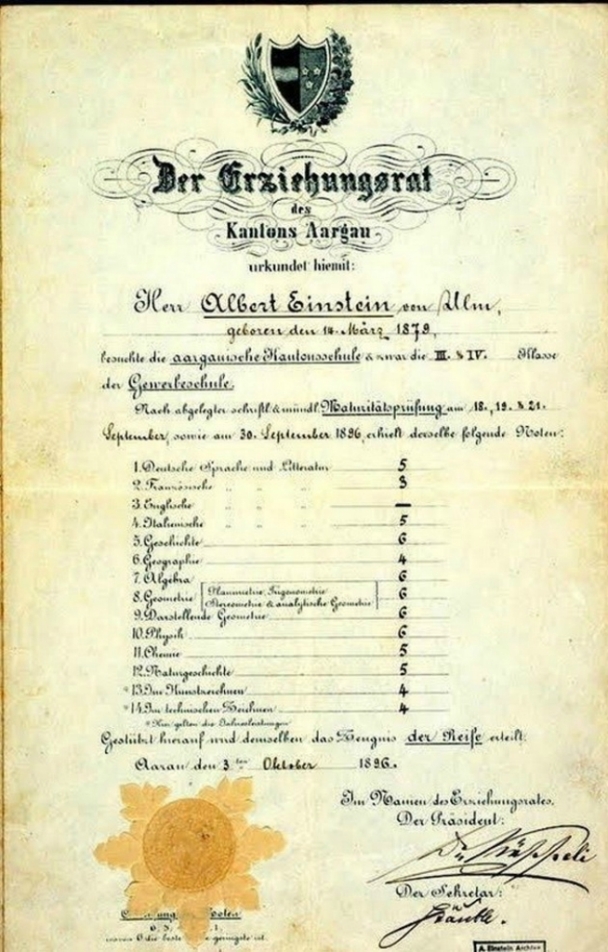 Der Erziehungsrat
des
Kantons Aargau
urkundet hiemit:
Herr Albert Einstein von Ulm,
geboren den 14. März 1879,
besuchte die aargauische Kantonsschule & zwar die III. & IV. Klasse
der Gewerbeschule.
Nach abgelegter schriftl. & mündl. Maturitätsprüfung am 18., 19. & 21.
September, sowie am 30. September 1896, erhielt derselbe folgende Noten:
1. Deutsche Sprache und Litteratur 5
2. Französische " " " 3
3. Englische " " " —
4. Italienische " " " 5
5. Geschichte 6
6. Geographie 4
7. Algebra 6
8. Geometrie Planimetrie, Trigonometrie 6
Stereometrie & analytische Geometrie
9. Darstellende Geometrie 6
10. Physik 6
11. Chemie 5
12. Naturgeschichte 5
*13. Im Kunstzeichnen 4
*14. Im technischen Zeichnen 4
* Hier gelten die Jahresleistungen
Gestützt hierauf wird demselben das Zeugnis der Reife erteilt.
Aarau den 3ten Oktober 1896.
Im Namen des Erziehungsrates,
Der Präsident:
Der Sekretär:
6. 5. 1.
A. Einstein Archive